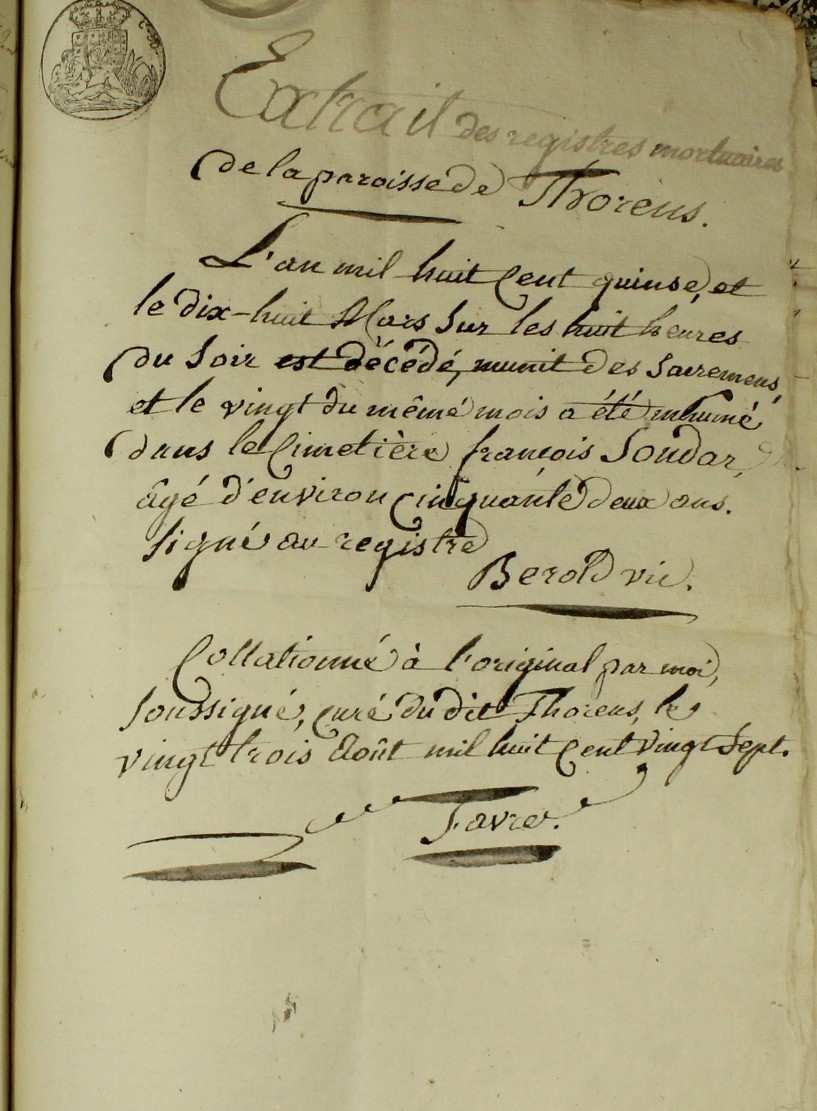 Extrait des registres mortuaires
de la paroisse de Thorens.
L'an mil huit Cent quinse, et
le dix-huit Mars Sur les huit heures
du Soir est décédé, munit des Sacremens,
et le vingt du même mois a été inhumé
dans le Cimetière françois Soudar,
âgé d'environ Cinquante deux ans.
Signé au registre
Berold vic.
Collationné à l'original par moi,
Soussigné, Curé du dit Thorens, le
vingt trois Août mil huit Cent vingt Sept.
Favre.